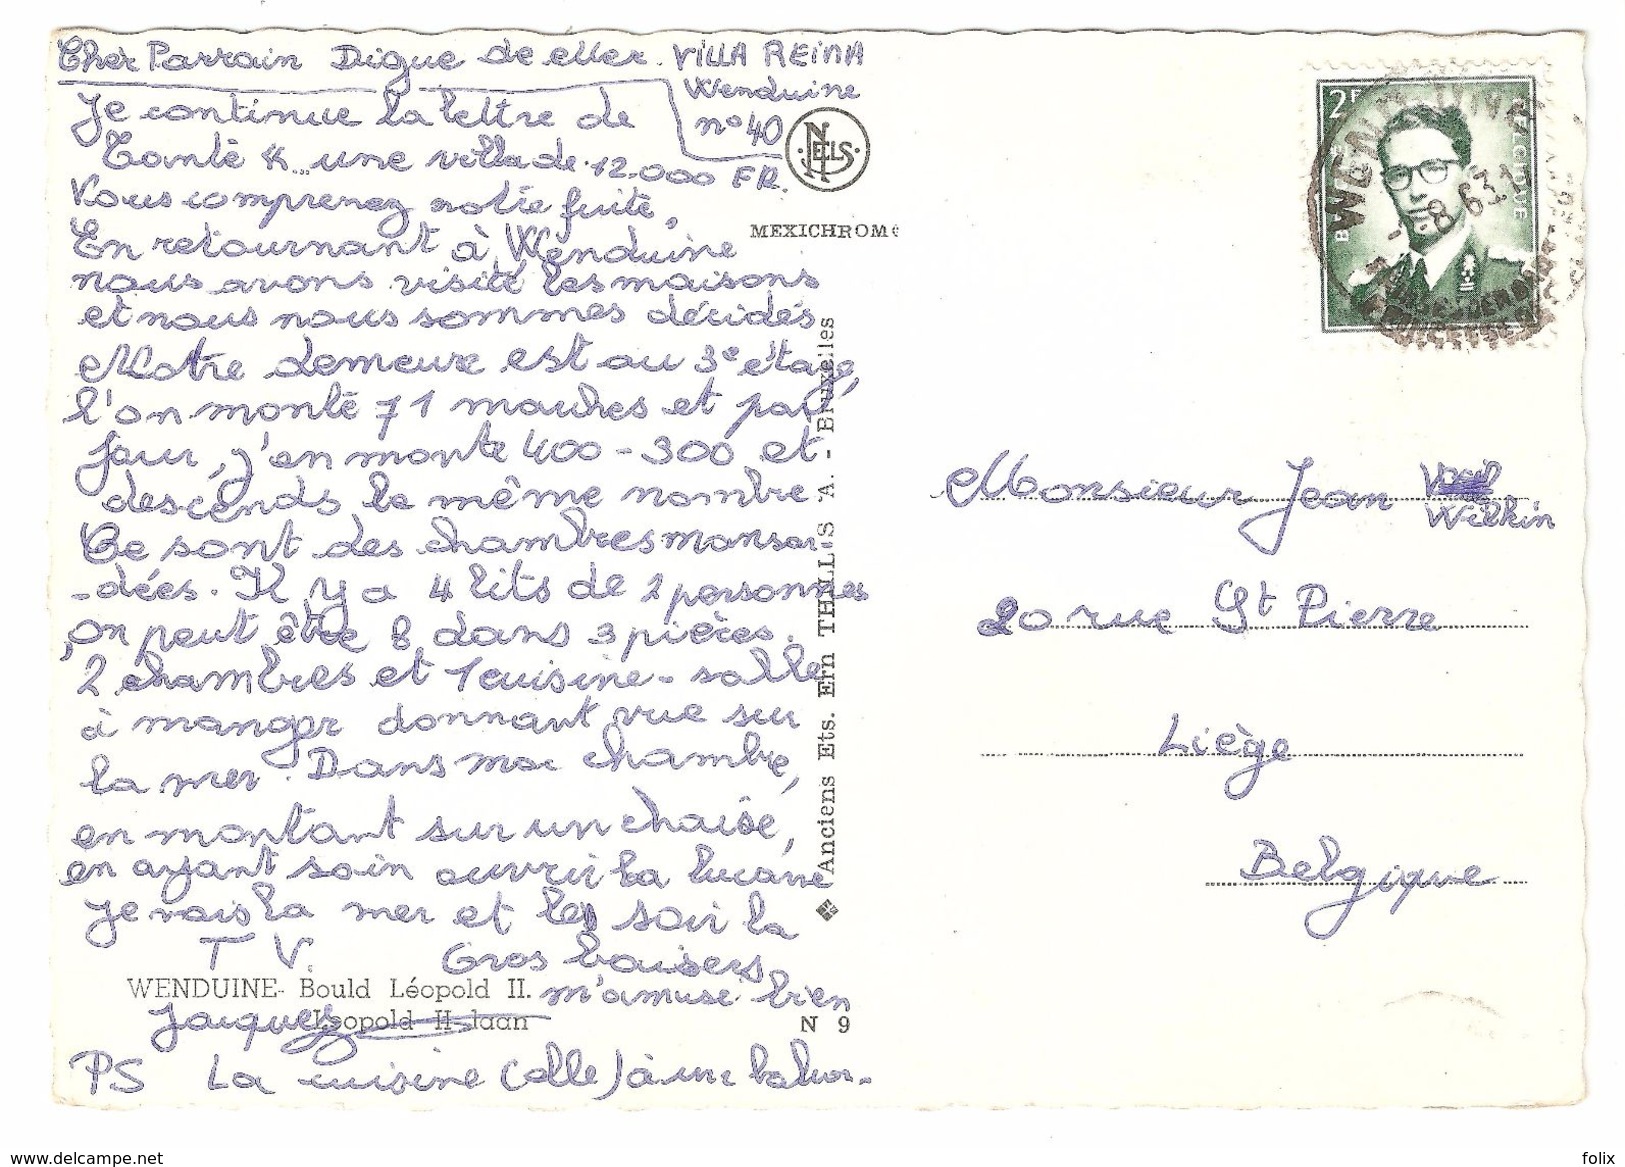 Cher Parrain Digue de Mer. VILLA REINA
Wenduine
n° 40
Je continue la lettre de
Tante K... une villa de 12.000 FR.
Vous comprenez notre fuite,
En retournant à Wenduine
nous avons visité les maisons
et nous nous sommes décidés
Notre demeure est au 3e étage,
l'on monte 71 marches et par
jour, j'en monte 400-300 et
descends le même nombre
Ce sont des chambres mansar-
-dées. Il y a 4 lits de 2 personnes
on peut être 8 dans 3 pièces.
2 chambres et 1 cuisine-salle
à manger donnant vue sur
la mer. Dans ma chambre,
en montant sur un chaise,
en ayant soin ouvrir la lucarne
Je vois la mer et le soir la
T V. Gros baisers
m'amuse bien
Jacques
PS La cuisine (alle) à une
NELS
MEXICHROME
Anciens Ets. Ern THILL S.A. - Bruxelles
WENDUINE- Bould Léopold II.
Leopold II-laan
N 9
2F
BELGIE BELGIQUE
WENDUINE
-8 63
Monsieur Jean
Wilkin
20 rue St Pierre
Liège
Belgique
www.delcampe.net
folix